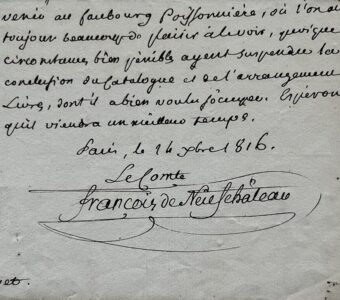 venir au faubourg Poissonnière, où l'on a
toujours beaucoup de plaisir à le voir, quoique
circonstances bien pénibles ayent suspendu la
conclusion du Catalogue et de l'arrangement
Livres, dont il a bien voulu s'occuper. Espérons
qu'il viendra un meilleur temps.
Paris, le 24 xbre 1816.
Le Comte
françois de Neufchâteau
et.